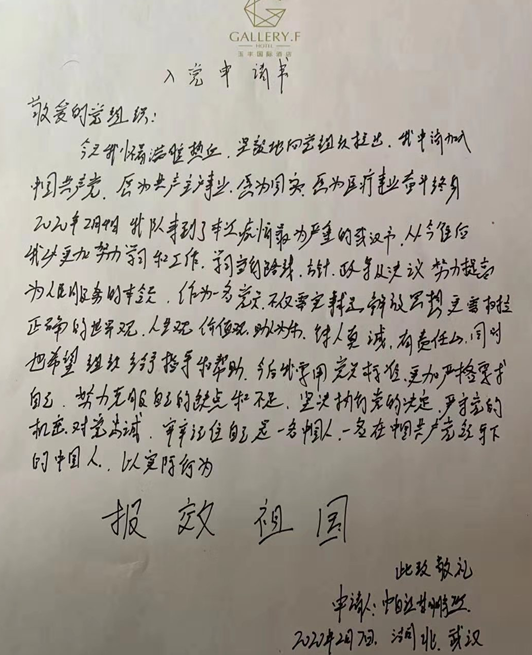 GALLERY.F
HOTEL
国际酒店
入党申请书
敬爱的党组织:
今天我怀满腔热血,坚毅地向党组织提出,我申请加入
中国共产党,愿为共产主义事业,愿为国家,愿为医疗事业奋斗终身
2020年2月4日我队来到了本次疫情最为严重的武汉市,从今往后
我从更加努力学习和工作,学习党的路线,方针,政策及决议努力提高
为人民服务的本领,作为一名党员不仅需要解放思想更需要树立
正确的世界观,人生观,价值观,助人为乐,待人真诚,有责任心,同时
也希望组织给予指导和帮助,今后我要用党员标准,更加严格要求
自己,努力克服自己的缺点和不足,坚决执行党的决定,严守党的
机密,对党忠诚,牢牢记住自己是一名中国人,一名在中国共产党领导下
的中国人,以实际行为
报效祖国
此致敬礼
申请人:
2020年2月7日 湖北武汉